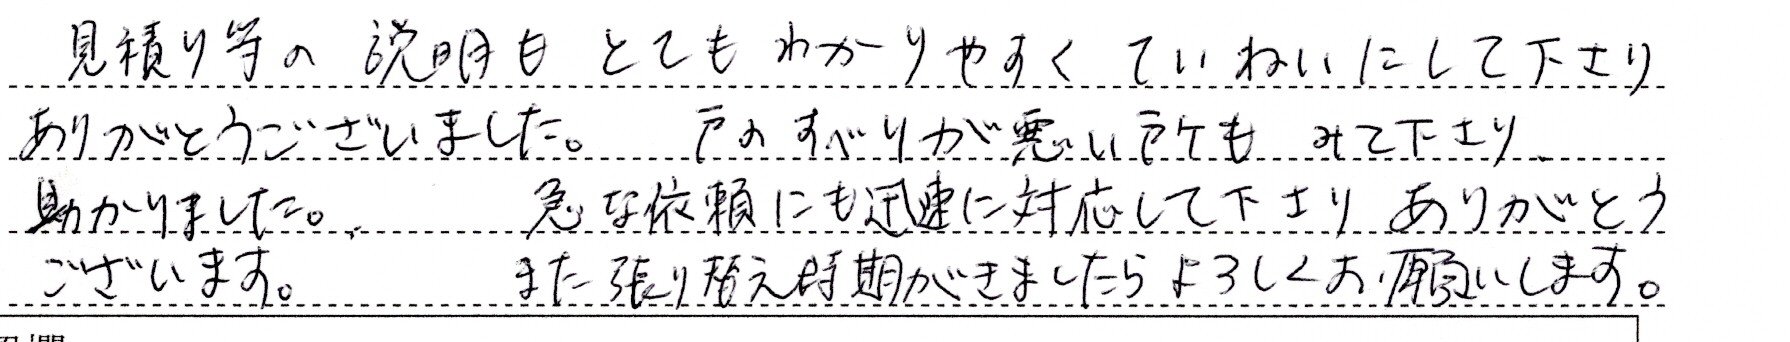 見積り等の説明も とても わかりやすく ていねいにして下さり
ありがとうございました。 戸のすべりが悪い所も みて下さり、
助かりました。 急な依頼にも迅速に対応して下さり ありがとう
ございます。 また張り替え時期がきましたらよろしくお願いします。